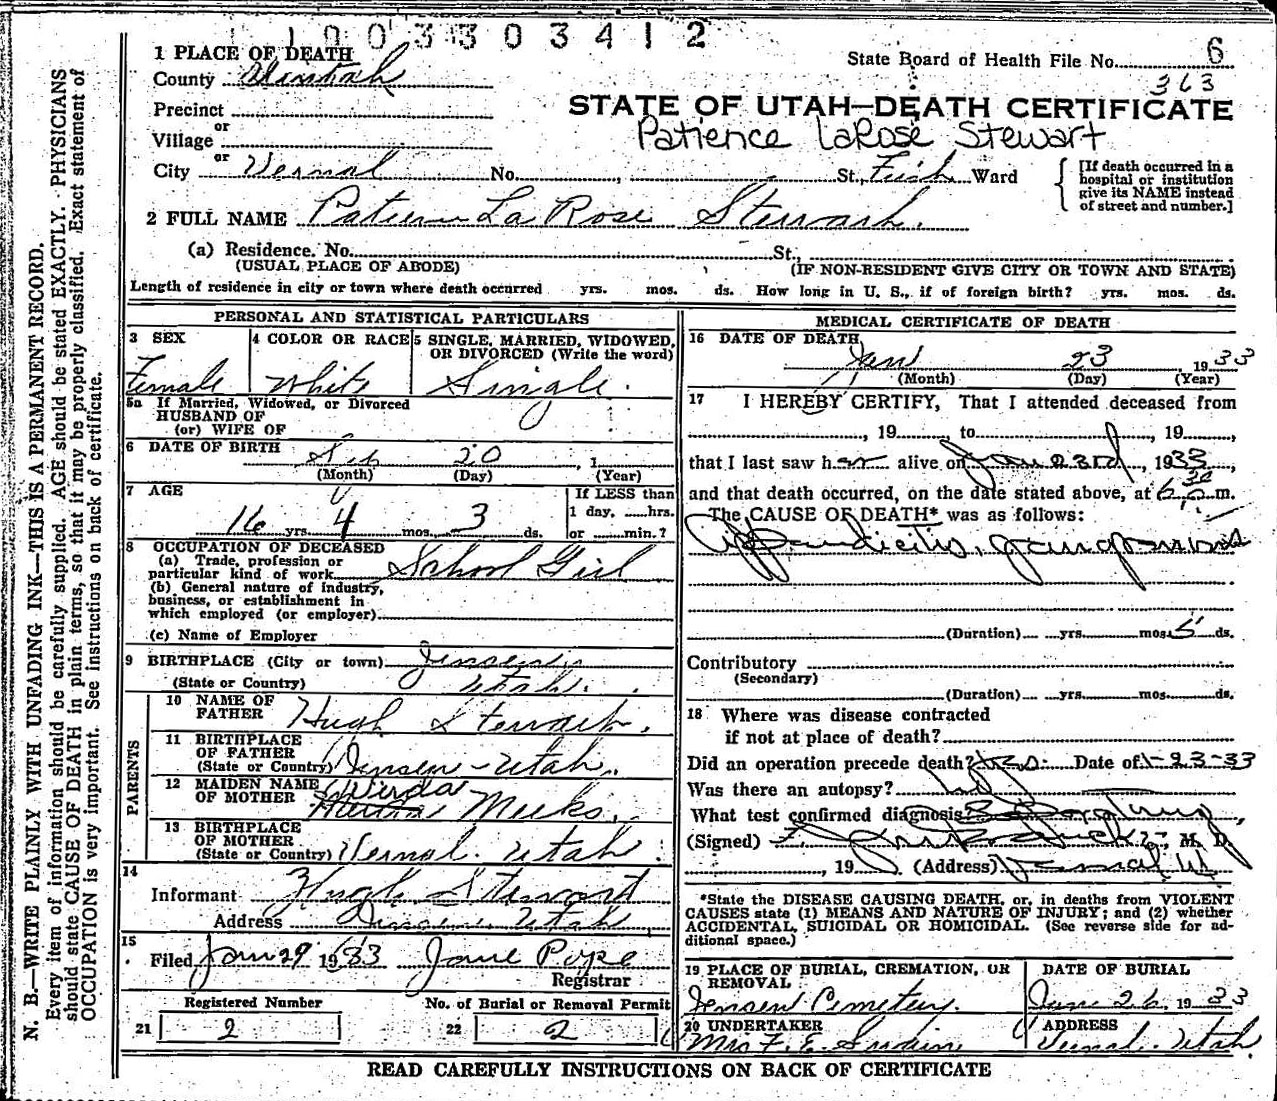 1003303412
1 PLACE OF DEATH
State Board of Health File No. 6
County Uintah
363
STATE OF UTAH—DEATH CERTIFICATE
Precinct
Patience LaRose Stewart
or
Village
or
City Vernal No. , St., Ward
[If death occurred in a
hospital or institution
give its NAME instead
of street and number.]
2 FULL NAME Patience LaRose Stewart.
(a) Residence. No. St.,
(USUAL PLACE OF ABODE) (IF NON-RESIDENT GIVE CITY OR TOWN AND STATE)
Length of residence in city or town where death occurred yrs. mos. ds. How long in U. S., if of foreign birth? yrs. mos. ds.
PERSONAL AND STATISTICAL PARTICULARS
3 SEX
Female
4 COLOR OR RACE
White
5 SINGLE, MARRIED, WIDOWED,
OR DIVORCED (Write the word)
Single.
5a If Married, Widowed, or Divorced
HUSBAND OF
(or) WIFE OF
6 DATE OF BIRTH 20 , 1
(Month) (Day) (Year)
7 AGE
16 yrs. 4 mos. 3 ds.
If LESS than
1 day, hrs.
or min.?
8 OCCUPATION OF DECEASED
(a) Trade, profession or
particular kind of work School Girl
(b) General nature of industry,
business, or establishment in
which employed (or employer)
(c) Name of Employer
9 BIRTHPLACE (City or town) Jensen
(State or Country) Utah.
PARENTS
10 NAME OF
FATHER Hugh Stewart.
11 BIRTHPLACE
OF FATHER
(State or Country) Jensen - Utah.
12 MAIDEN NAME
OF MOTHER Meeks.
13 BIRTHPLACE
OF MOTHER
(State or Country) Vernal. Utah
14
Informant Hugh Stewart
Address Jensen Utah
15
Filed Jan 29 1933 Jane Pope
Registrar
Registered Number No. of Burial or Removal Permit
21 2 22 2
MEDICAL CERTIFICATE OF DEATH
16 DATE OF DEATH
Jan 23 1933
(Month) (Day) (Year)
17 I HEREBY CERTIFY, That I attended deceased from
, 19 to , 19 ,
that I last saw her alive on Jan 23rd, 1933,
and that death occurred, on the date stated above, at 6 30 m.
The CAUSE OF DEATH* was as follows:
Appendicitis, gangrenous
(Duration) yrs. mos. 5 ds.
Contributory
(Secondary)
(Duration) yrs. mos. ds.
18 Where was disease contracted
if not at place of death?
Did an operation precede death? Yes. Date of 1-23-33
Was there an autopsy? No
What test confirmed diagnosis?
(Signed) , M. D.
, 19 (Address) Vernal Ut
*State the DISEASE CAUSING DEATH, or, in deaths from VIOLENT
CAUSES state (1) MEANS AND NATURE OF INJURY; and (2) whether
ACCIDENTAL, SUICIDAL OR HOMICIDAL. (See reverse side for ad-
ditional space.)
19 PLACE OF BURIAL, CREMATION, OR
REMOVAL
Jensen Cemetery.
DATE OF BURIAL
26 1933
20 UNDERTAKER
Mrs F. E.
ADDRESS
Vernal. Utah.
READ CAREFULLY INSTRUCTIONS ON BACK OF CERTIFICATE
N. B.—WRITE PLAINLY WITH UNFADING INK—THIS IS A PERMANENT RECORD.
Every item of information should be carefully supplied. AGE should be stated EXACTLY. PHYSICIANS
should state CAUSE OF DEATH in plain terms, so that it may be properly classified. Exact statement of
OCCUPATION is very important. See Instructions on back of certificate.